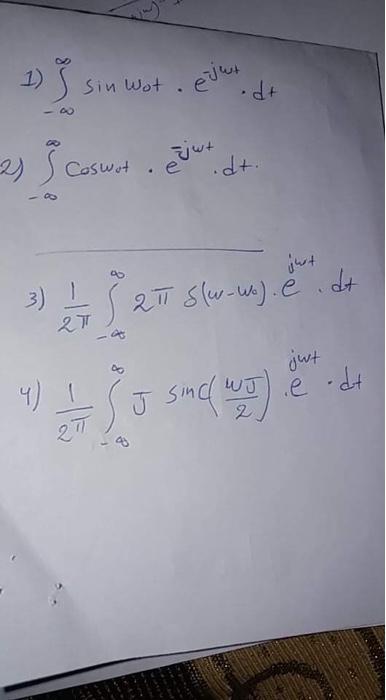 1) ∫_{-∞}^{∞} sin w₀t · e^{-jwt} · dt
2) ∫_{-∞}^{∞} Cos w₀t · e^{-jwt} · dt.
3) 1/2π ∫_{-∞}^{∞} 2π δ(w-w₀) · e^{jwt} · dt
4) 1/2π ∫_{-∞}^{∞} J sinc(wJ/2) · e^{jwt} · dt